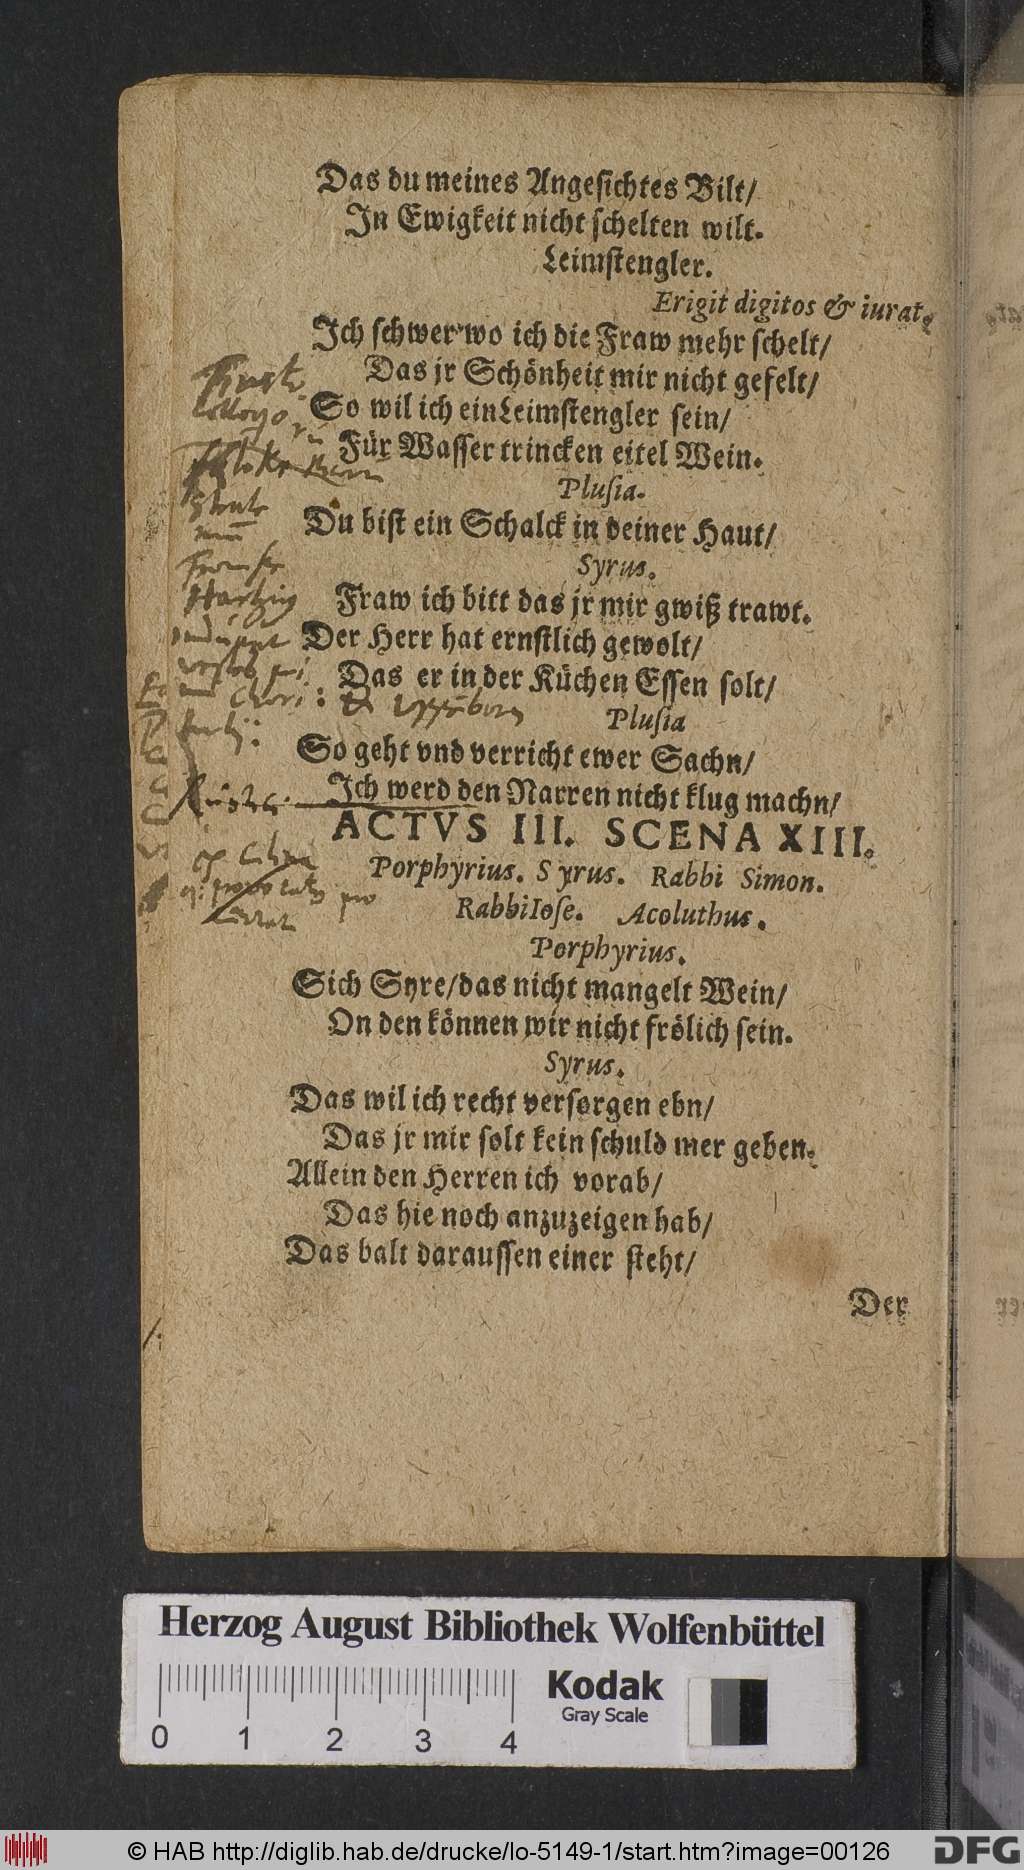 Das du meines Angesichtes Bilt/
In Ewigkeit nicht schelten wilt.
Leimstengler.
Erigit digitos & iurat.
Ich schwer wo ich die Fraw mehr schelt/
Das jr Schönheit mir nicht gefelt/
So wil ich ein Leimstengler sein/
Für Wasser trincken eitel Wein.
Plusia.
Du bist ein Schalck in deiner Haut/
Syrus.
Fraw ich bitt das jr mir gwiß trawt.
Der Herr hat ernstlich gewolt/
Das er in der Küchen Essen solt/
Plusia
So geht vnd verricht ewer Sachn/
Ich werd den Narren nicht klug machn/
ACTVS III. SCENA XIII.
Porphyrius. Syrus. Rabbi Simon.
Rabbi Iose. Acoluthus.
Porphyrius.
Sich Syre/das nicht mangelt Wein/
On den können wir nicht frölich sein.
Syrus.
Das wil ich recht versorgen ebn/
Das jr mir solt kein schuld mer geben.
Allein den Herren ich vorab/
Das hie noch anzuzeigen hab/
Das balt daraussen einer steht/
Der
Herzog August Bibliothek Wolfenbüttel
Kodak
Gray Scale
0 1 2 3 4
© HAB http://diglib.hab.de/drucke/lo-5149-1/start.htm?image=00126
DFG